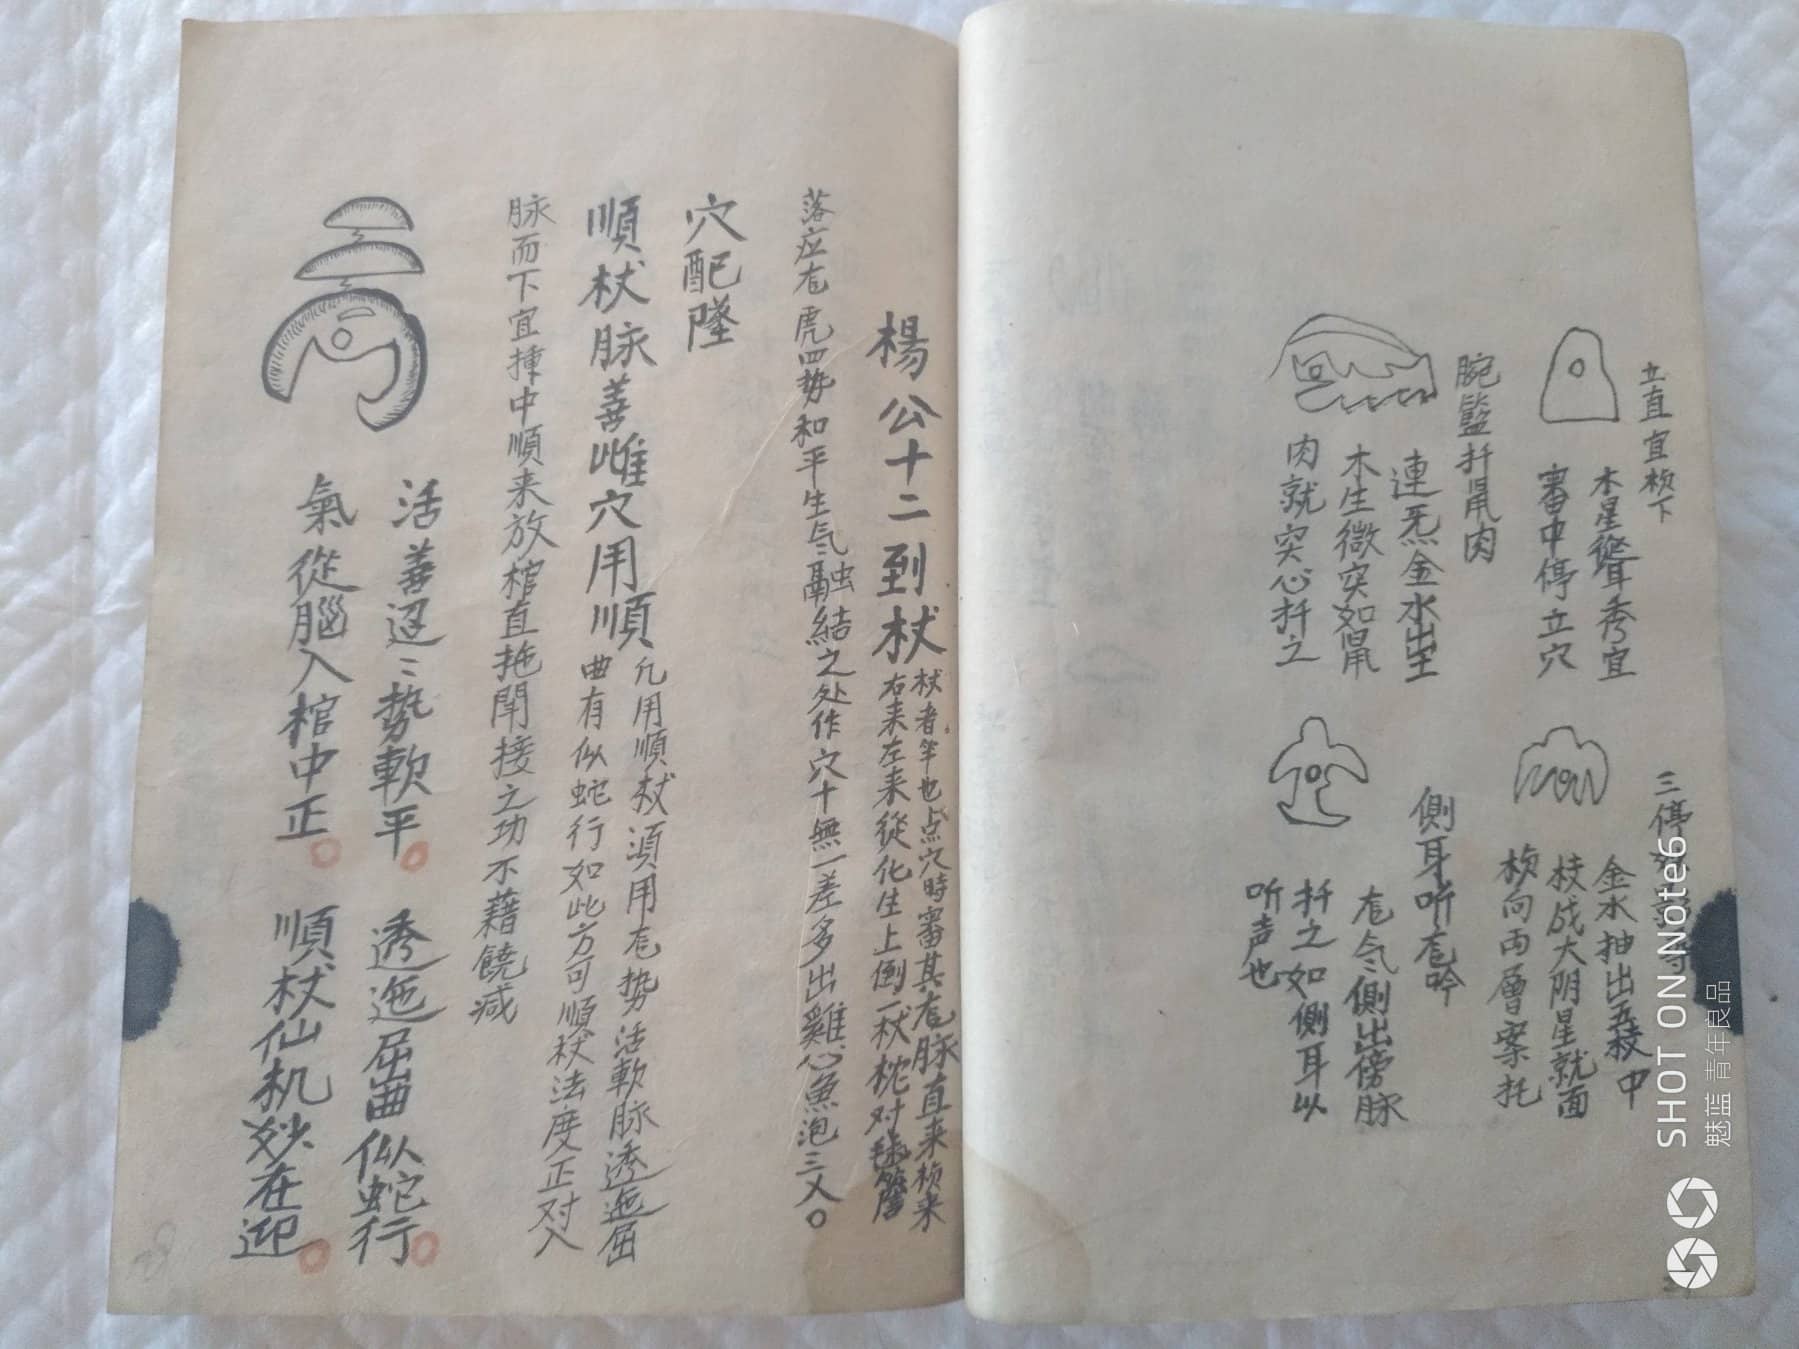 立直宜桢下
木星聳秀宜
審中停立穴
腕籃扦𦘺肉
連炁金水出土
木生微突如
肉就突心扦之
三停
金水抽出五枝中
枝成大阴星就面
桢向両層案托
側耳听𫝑吟
𫝑气側出傍脉
扦之如側耳以
听声也
楊公十二到杖
杖者竿也点穴時審其𫝑脉直来桢来
右来左来從化生上倒一杖枕对毬簷
落应𫝑虎四势和平生气融結之处作穴十無一差多出雞心魚泡三乂。
穴配墜
順杖脉善雌穴用順
凢用順杖須用𫝑势活軟脉透迤屈
曲有似蛇行如此方可順杖法度正对入
脉而下宜撞中順来放棺直拖闘接之功不藉饒减
活善迢〻势軟平。透迤屈曲似蛇行。
氣從腦入棺中正。順杖仙机妙在迎。
SHOT ON Note6
魅蓝 青年良品